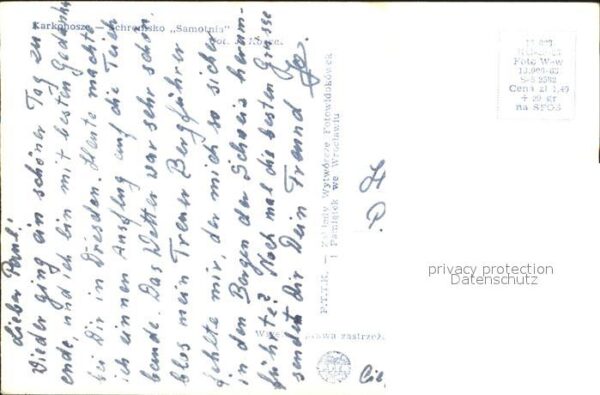 Karkonosze — Schronisko „Samotnia"
Fot. J. Korpal
Lieber Paul!
Wieder ging ein schöner Tag zu
ende, und ich bin mit besten Gedanken
bei Dir in Dresden. Heute machte
ich einnen Ausflug auf die Teich
baude. Das Wetter war sehr schön
blos mein Treuer Bergführer
fehlte mir, der mich so sicher
in den Bergen der Schweis herum-
führte? Noch mal die besten Grüsse
sendet Dir Dein Freund
P.T.T.K. — Zakłady Wytwórcze Fotowidokówek
i Pamiątek we Wrocławiu
Foto W-w
Cena zł 1,49
+ 20 gr
na SFOS
privacy protection
Datenschutz